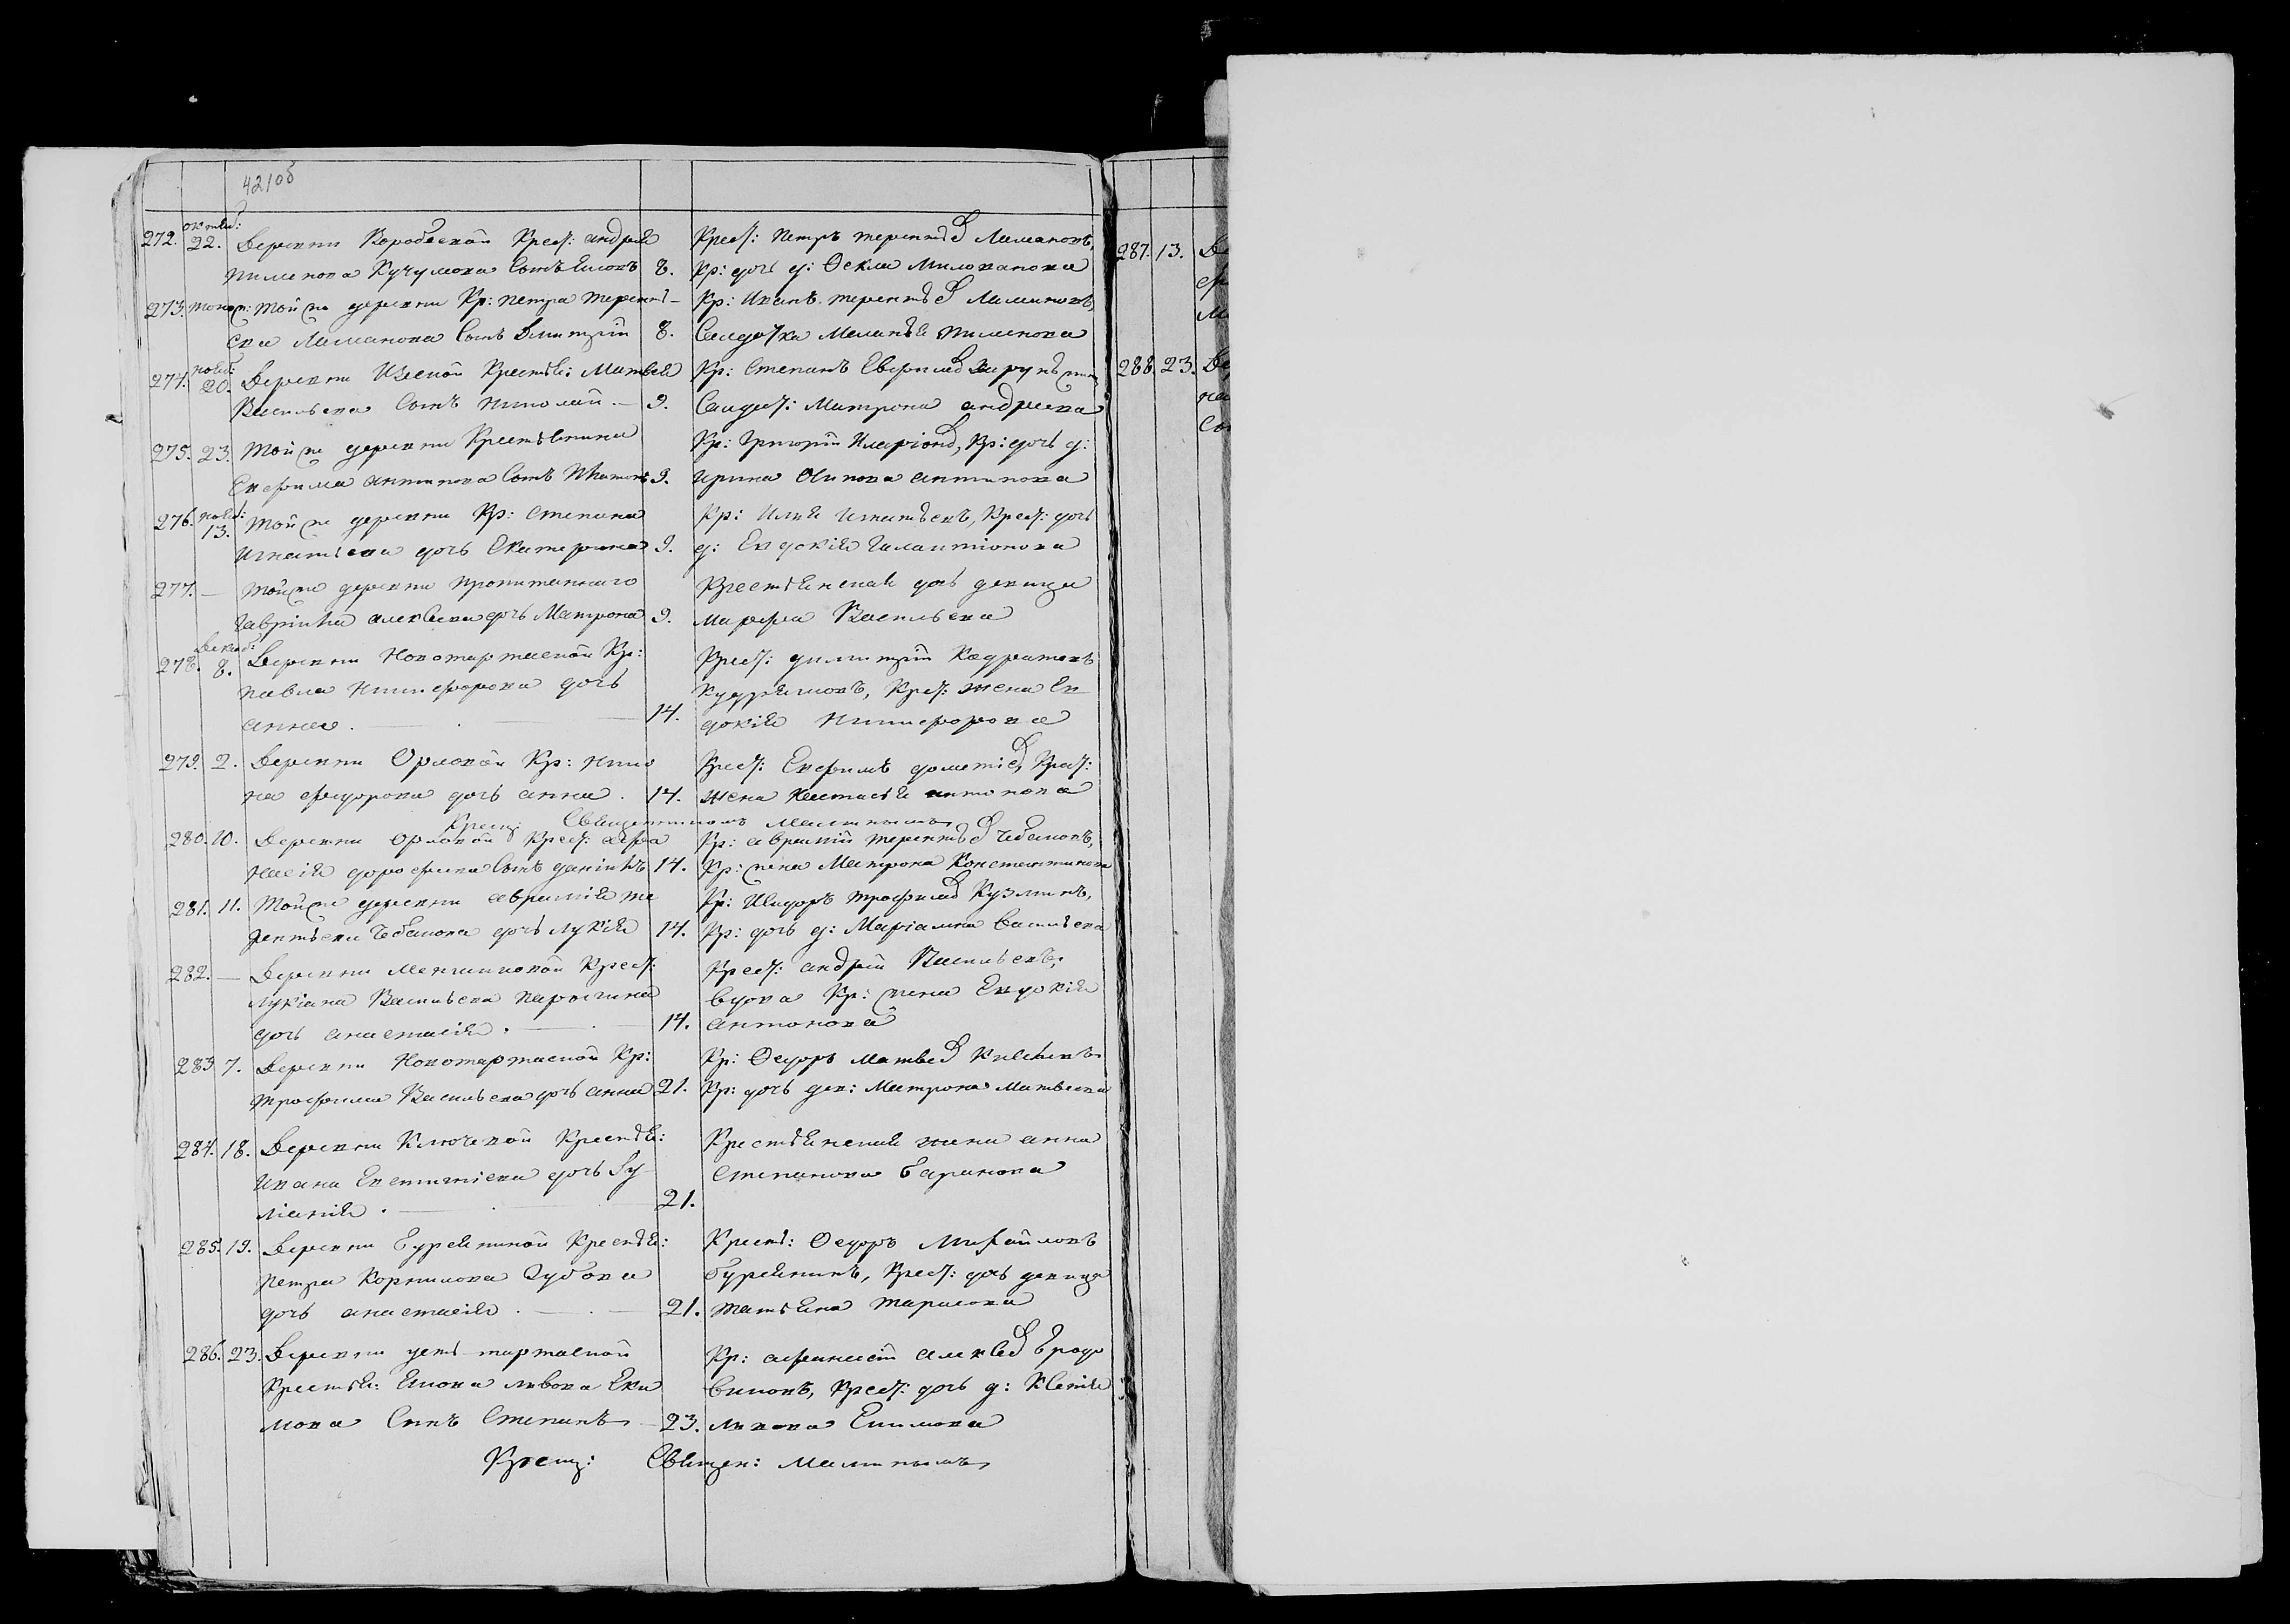 421об
272. октяб: 22. Деревни Воробьевой Крест: андрея 
Пименова Кучумова сынъ Симонъ 8.
Крест: Петръ терентьев Лимановъ,
Кр: дочь д: Ѳекла Милованова
273. Той же деревни Кр: петра терентье-
ева Лиманова сынъ Димитрій 8.
Кр: Иванъ терентьев Лимановъ,
Салдатка Меланья Пименова
274. нояб: 20. Деревни Крестья: Матвея
Васильева сынъ Николай. — 9.
Кр: Степанъ
Салдат: Матрона андреева
275. 23. Той же деревни Крестьянина
Ефрема антипова сынъ 9.
Кр: Григорій Иларіонов, Кр: дочь д:
ирина Осипова антипова
276. нояб: 13. Той же деревни Кр: степана
игнатьева дочь Екатерина 9.
Кр: Илья Игнатьевъ, Крест: дочь
д: Евдокія Галактіонова
277. — Той же деревни пропитаннаго
Гавріила алексеева дочь Матрона 9.
Крестьянская дочь девица
Марфа Васильева
278. Декаб: 8. Деревни Новотартаской Кр:
павла Никифорова дочь
анна. — 14.
Крест: димитрій Кодратовъ
Кудряшовъ, Крест: жена Ев
докія Никифорова
279. 2. Деревни Орловой Кр: Нико
на федорова дочь анна. 14.
Крест: Ефимъ дометіев, Крест:
жена Настасья антонова
Крещ: Священникомъ Малинымъ
280. 10. Деревни орловой Крест: Афа
насія дорофеева сынъ даніилъ 14.
Кр: аврамій терентьев Чебаковъ,
Кр: жена Матрона Константинова
281. 11. Той же деревни аврамія те
рентьева Чебакова дочь лукія 14.
Кр: Исидоръ трофимов Кузминъ,
Кр: дочь д: Маріамна Васильева
282. — Деревни Меншиковой Крест:
Лукіана Васильева
дочь анастасія. — 14.
Крест: андрей Васильевъ,
вдова Кр: жена Евдокія
антонова
283. 7. Деревни Новотартаской Кр:
трофима Васильева дочь анна 21.
Кр: Ѳедоръ Матвеев
Кр: дочь дев: Матрона Матвеева
284. 18. Деревни Ключевой Крестья:
Ивана Евстигнеева дочь Іу
ліанія. — 21.
Крестьянская жена анна
степанова баранова
285. 19. Деревни Бурейкиной Крестья:
петра Корнилова Зубова
дочь анастасія. — 21.
Крестья: Ѳедоръ Михайловъ
бурейкинъ, Крест: дочь девица
татьяна тарасова
286. 23. Деревни усть-тартаской
Крестья: львова Еки
мова сынъ Степанъ — 23.
Кр: афанасій алексеев
Крест: дочь д: Ксенія
львова Екимова
Крещ: Священ: Малинымъ
287. 13. Де
288. 23. Де